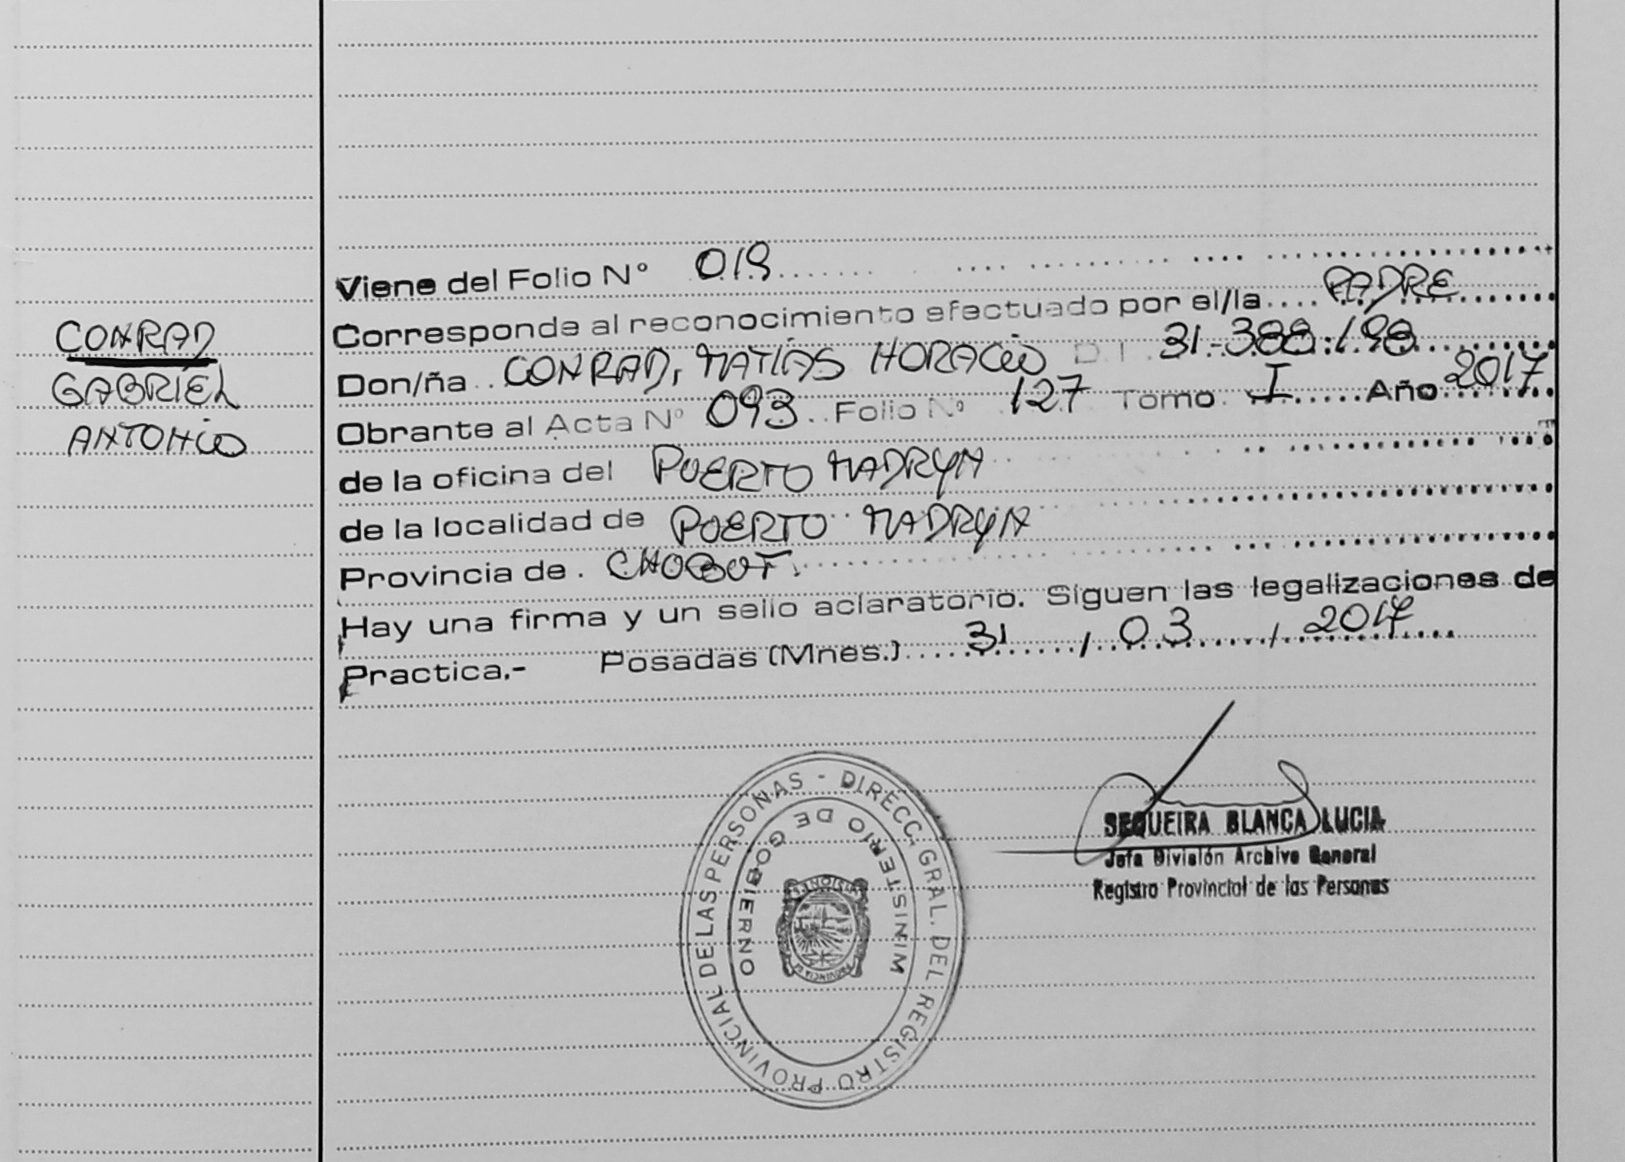 CONRAD
GABRIEL
ANTONIO
Viene del Folio N° 019
Corresponde al reconocimiento efectuado por el/la PADRE
Don/ña CONRAD, MATÍAS HORACIO D.I. 31.388.198
Obrante al Acta N° 093 Folio N° 127 Tomo I Año 2017
de la oficina del PUERTO MADRYN
de la localidad de PUERTO MADRYN
Provincia de CHUBUT.
Hay una firma y un sello aclaratorio. Siguen las legalizaciones de
Practica.- Posadas (Mnes.) 31 / 03 / 2017
SEQUEIRA BLANCA LUCIA
Jefa División Archivo General
Registro Provincial de las Personas
DIRECC. GRAL. DEL REGISTRO PROVINCIAL DE LAS PERSONAS -
MINISTERIO DE GOBIERNO
PROVINCIA DE MISIONES